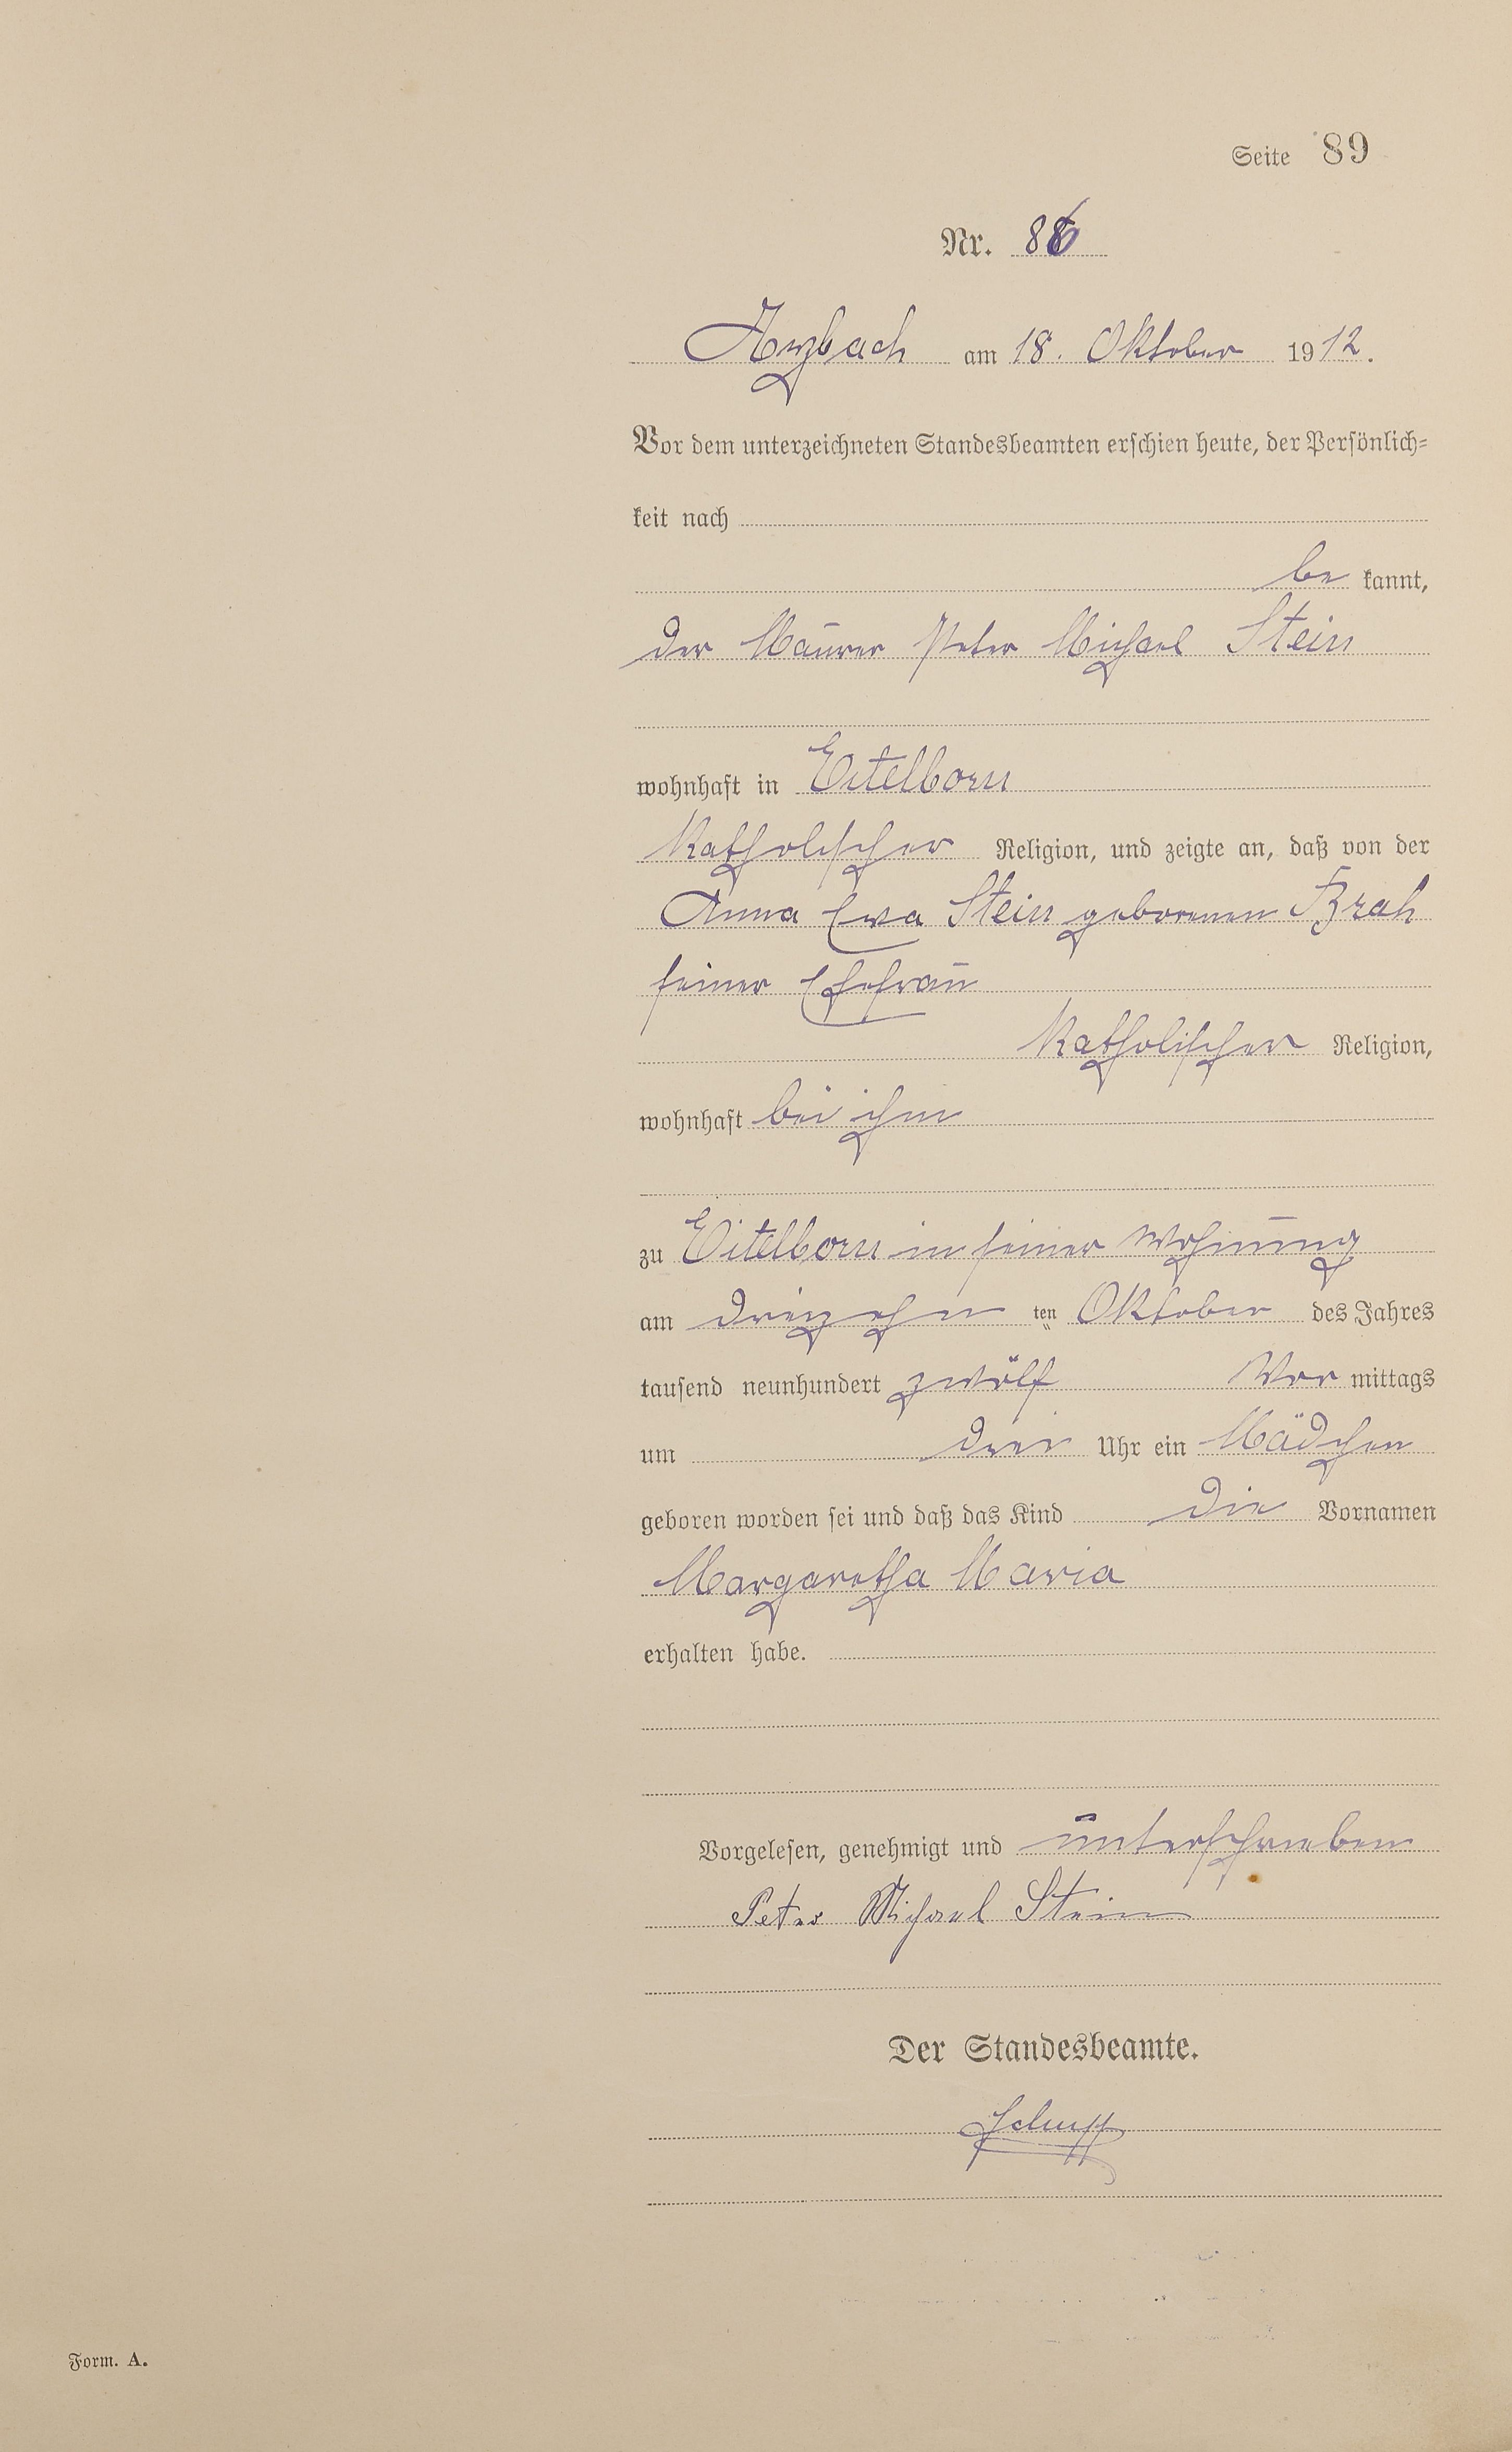 Seite 89
Nr. 86
Arzbach am 18. Oktober 1912.
Vor dem unterzeichneten Standesbeamten erschien heute, der Persönlich=
keit nach
be kannt,
der Maurer Peter Michael Stein
wohnhaft in Eitelborn
katholischer Religion, und zeigte an, daß von der
Anna Eva Stein geborenen Brah
seiner Ehefrau
katholischer Religion,
wohnhaft bei ihm
zu Eitelborn in seiner Wohnung
am dreizehn ten Oktober des Jahres
tausend neunhundert zwölf Vor mittags
um drei Uhr ein Mädchen
geboren worden sei und daß das Kind die Vornamen
Margaretha Maria
erhalten habe.
Vorgelesen, genehmigt und unterschrieben
Peter Michael Stein
Der Standesbeamte.
Form. A.